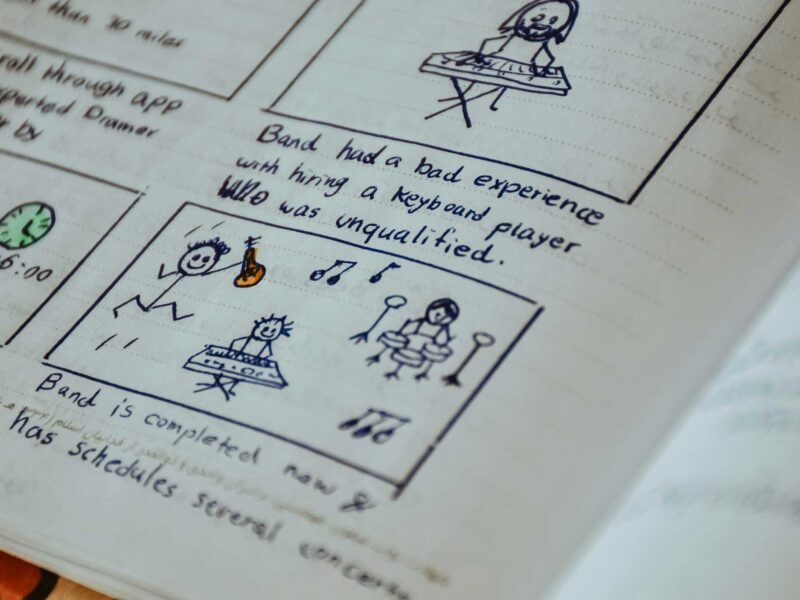 than 30 miles
through app
Drumer
by
Band had a bad experience
with hiring a keyboard player
who was unqualified.
6:00
Band is completed now &
has schedules several concerts